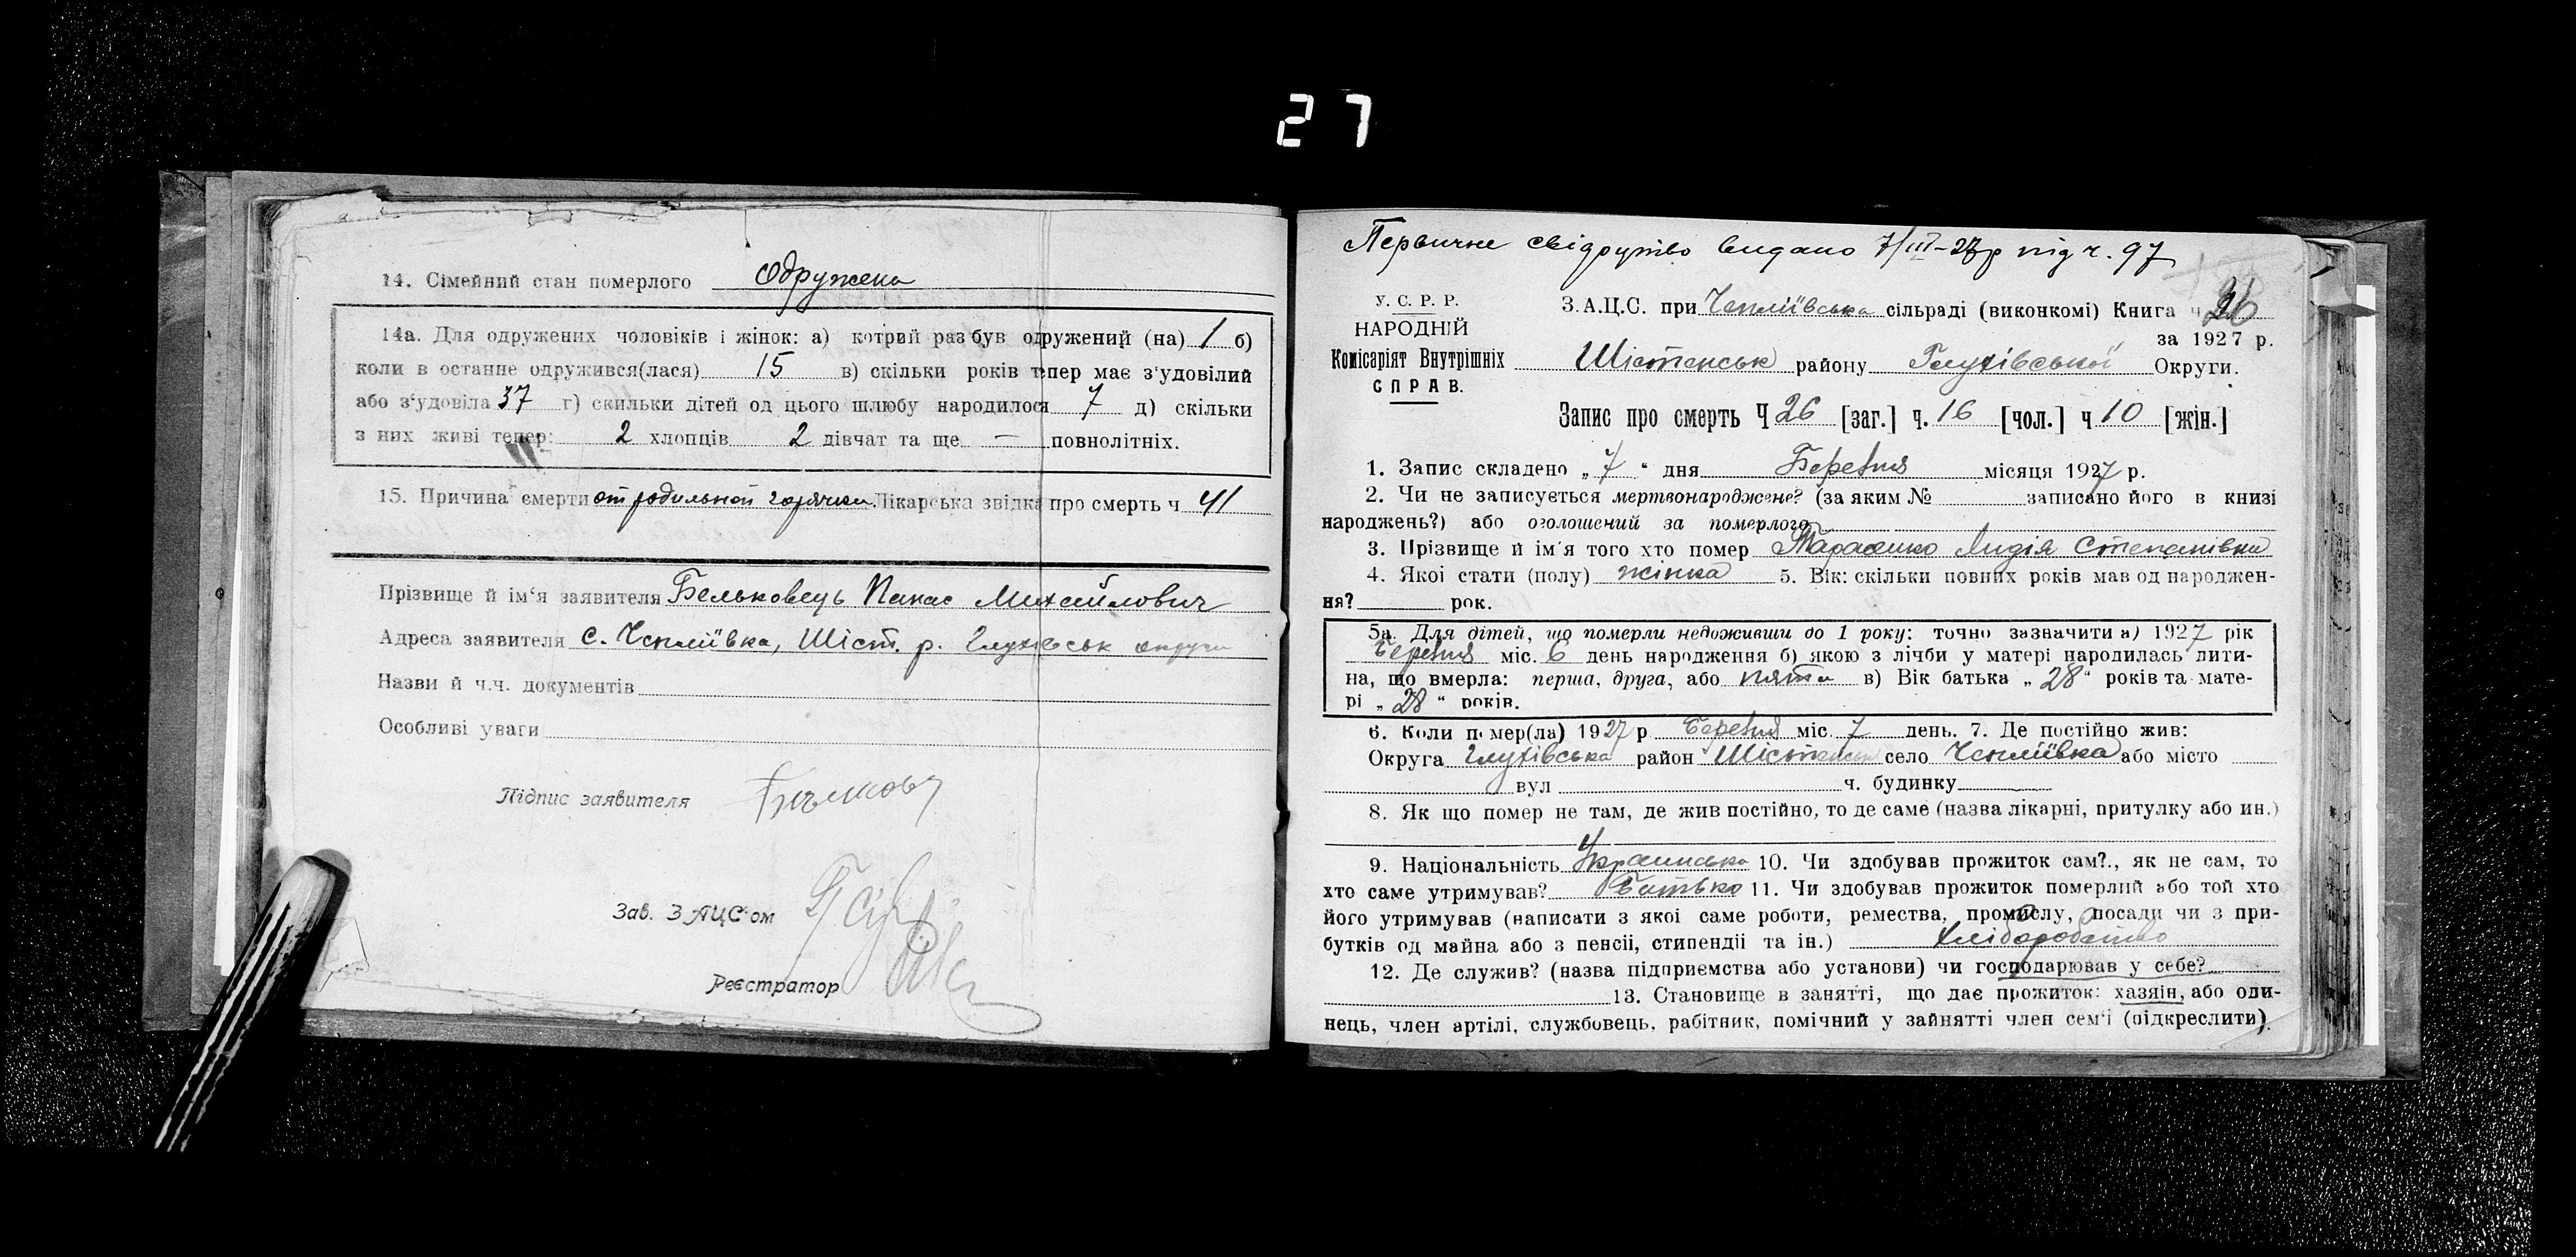 27
14. Сімейний стан померлого Одружена
14а. Для одружених чоловіків і жінок: а) котрий раз був одружений (на) 1 б)
коли в останнє одружився(лася) 15 в) скільки років тепер має з'удовілий
або з'удовіла 37 г) скильки дітей од цього шлюбу народилося 7 д) скільки
з них живі тепер: 2 хлопців 2 дівчат та ще — повнолітніх.
15. Причина смерти от родильной горячки Лікарська звідка про смерть ч 41
Прізвище й ім'я заявителя Бельковець Панас Михайлович
Адреса заявителя с. Чепліївка, Шіст. р. Глухівськ округи
Назви й ч.ч. документів
Особливі уваги
Підпис заявителя
Зав. ЗАЦС'ом
Реєстратор
Первичне свідоцтво видано 7/III-27р під ч. 97
У. С. Р. Р.
НАРОДНІЙ
Комісаріят Внутрішніх
СПРАВ.
З.А.Ц.С. при Чепліївська сільраді (виконкомі) Книга ч 26
за 1927 р.
Шістенськ району Глухівської Округи.
Запис про смерть Ч 26 [заг.] ч. 16 [чол.] ч 10 [жін.]
1. Запис складено „7“ дня Березня місяця 1927 р.
2. Чи не записується мертвонароджене? (за яким № записано його в книзі
народжень?) або оголошений за померлого
3. Прізвище й ім'я того хто помер Тарасенко Лидія Степанівна
4. Якої стати (полу) жінка 5. Вік: скільки повних років мав од народжен-
ня? рок.
5а. Для дітей, що померли недоживши до 1 року: точно зазначити а) 1927 рік
Березня міс. 6 день народження б) якою з лічби у матері народилась дити-
на, що вмерла: перша, друга, або пята в) Вік батька „28“ років та мате-
рі „28“ років.
6. Коли помер(ла) 1927 р Березня міс. 7 день. 7. Де постійно жив:
Округа Глухівська район Шістенськ село Чепліївка або місто
вул ч. будинку
8. Як що помер не там, де жив постійно, то де саме (назва лікарні, притулку або ин.)
9. Національність Українська 10. Чи здобував прожиток сам?., як не сам, то
хто саме утримував? Батько 11. Чи здобував прожиток померлий або той хто
його утримував (написати з якої саме роботи, ремества, промислу, посади чи з при-
бутків од майна або з пенсії, стипендії та ін.) Хліборобство
12. Де служив? (назва підприємства або установи) чи господарював у себе?
13. Становище в занятті, що дає прожиток: хазяін, або оди-
нець, член артілі, службовець, рабітник, помічний у зайнятті член сем'ї (підкреслити).